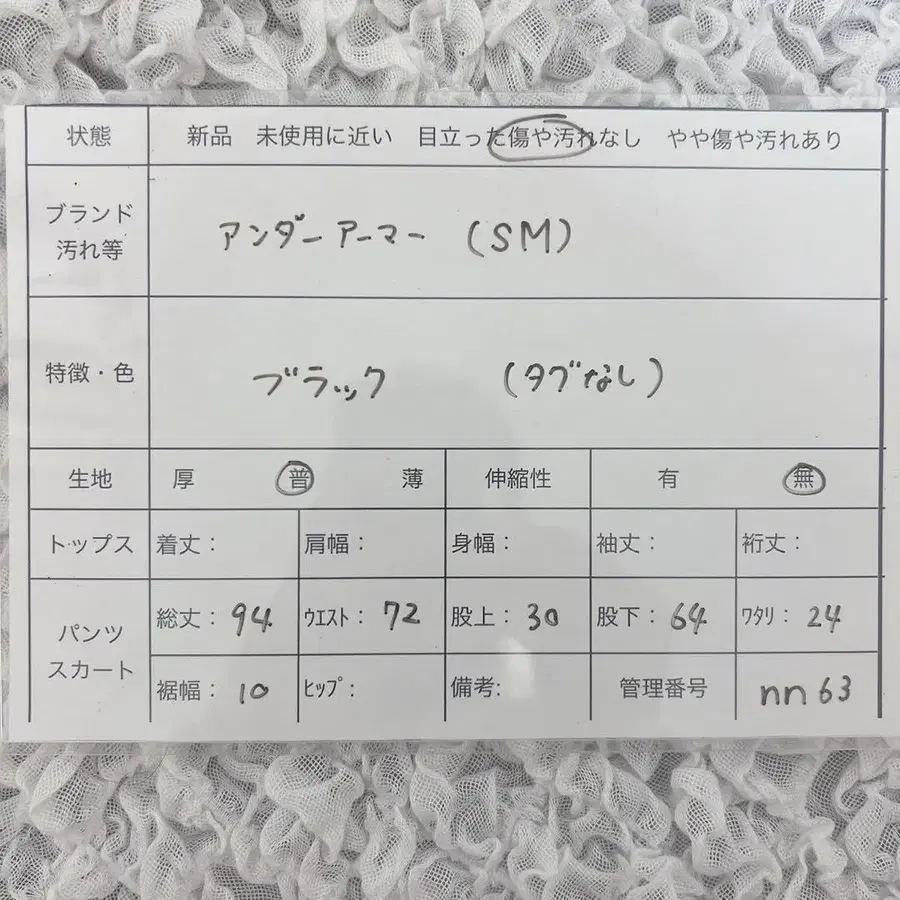 状態 新品 未使用に近い 目立った傷や汚れなし やや傷や汚れあり
ブランド
汚れ等
アンダーアーマー (SM)
特徴・色 ブラック (タグなし)
生地 厚 普 薄 伸縮性 有 無
トップス 着丈: 肩幅: 身幅: 袖丈: 裄丈:
パンツ
スカート
総丈: 94 ｳｴｽﾄ: 72 股上: 30 股下: 64 ﾜﾀﾘ: 24
裾幅: 10 ﾋｯﾌﾟ: 備考: 管理番号 nn63